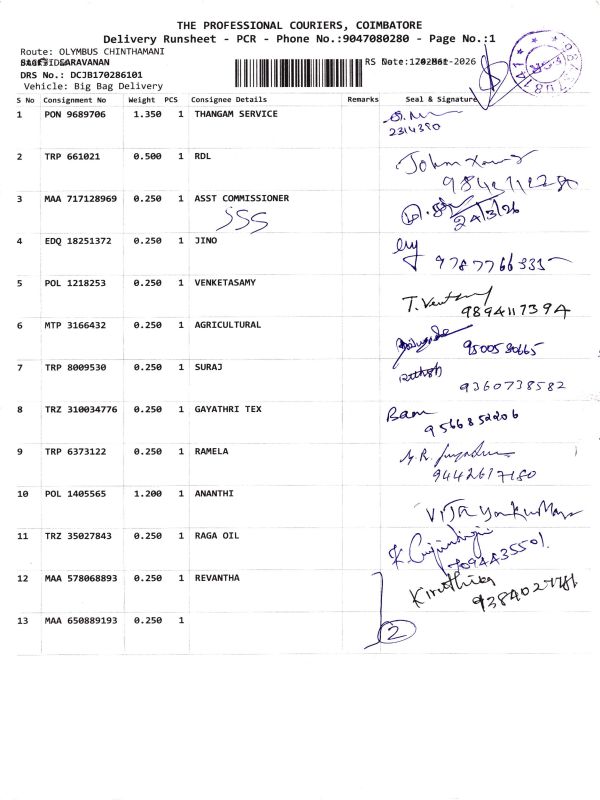 THE PROFESSIONAL COURIERS, COIMBATORE
Delivery Runsheet - PCR - Phone No.:9047080280 - Page No.:1
Route: OLYMBUS CHINTHAMANI
SARAVANAN
DRS No.: DCJB170286101
Vehicle: Big Bag Delivery
S No Consignment No Weight PCS Consignee Details Remarks Seal & Signature
1 PON 9689706 1.350 1 THANGAM SERVICE
2314390
2 TRP 661021 0.500 1 RDL
3 MAA 717128969 0.250 1 ASST COMMISSIONER
24/3/26
4 EDQ 18251372 0.250 1 JINO
9787766335
5 POL 1218253 0.250 1 VENKETASAMY
9894117394
6 MTP 3166432 0.250 1 AGRICULTURAL
9500580665
7 TRP 8009530 0.250 1 SURAJ
9360738582
8 TRZ 310034776 0.250 1 GAYATHRI TEX
9566852206
9 TRP 6373122 0.250 1 RAMELA
9442617180
10 POL 1405565 1.200 1 ANANTHI
11 TRZ 35027843 0.250 1 RAGA OIL
7094435501
12 MAA 578068893 0.250 1 REVANTHA
Kiruthika
13 MAA 650889193 0.250 1
2